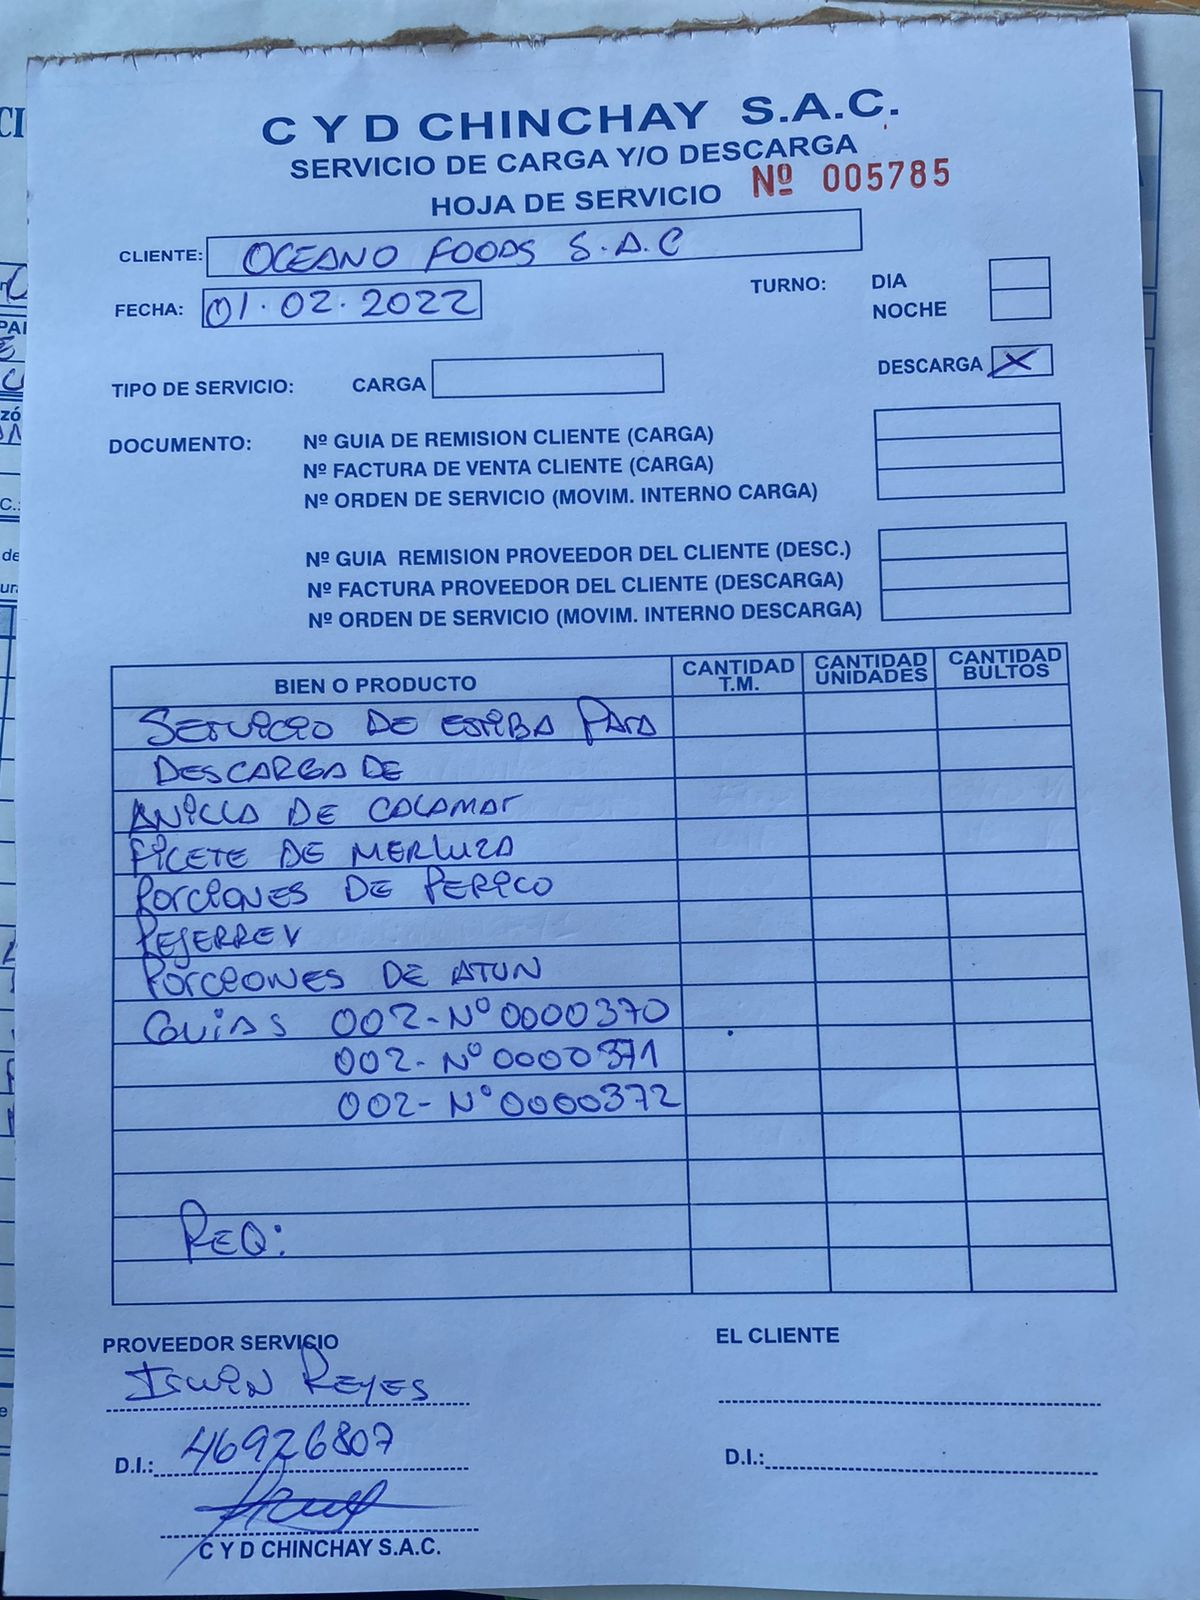 C Y D CHINCHAY S.A.C.
SERVICIO DE CARGA Y/O DESCARGA
HOJA DE SERVICIO Nº 005785
CLIENTE: OCEANO FOODS S.A.C
FECHA: 01.02.2022
TURNO: DIA
NOCHE
TIPO DE SERVICIO: CARGA
DESCARGA X
DOCUMENTO: Nº GUIA DE REMISION CLIENTE (CARGA)
Nº FACTURA DE VENTA CLIENTE (CARGA)
Nº ORDEN DE SERVICIO (MOVIM. INTERNO CARGA)
Nº GUIA REMISION PROVEEDOR DEL CLIENTE (DESC.)
Nº FACTURA PROVEEDOR DEL CLIENTE (DESCARGA)
Nº ORDEN DE SERVICIO (MOVIM. INTERNO DESCARGA)
BIEN O PRODUCTO CANTIDAD T.M. CANTIDAD UNIDADES CANTIDAD BULTOS
SERVICIO DE ESTIBA PARA
DESCARGA DE
ANILLA DE CALAMAR
FILETE DE MERLUZA
PORCIONES DE PERICO
PEJERREY
PORCIONES DE ATUN
GUIAS 002-Nº0000370
002-Nº0000371
002-Nº0000372
REQ:
PROVEEDOR SERVICIO
EL CLIENTE
IRWIN REYES
D.I.: 46926807
D.I.:
C Y D CHINCHAY S.A.C.